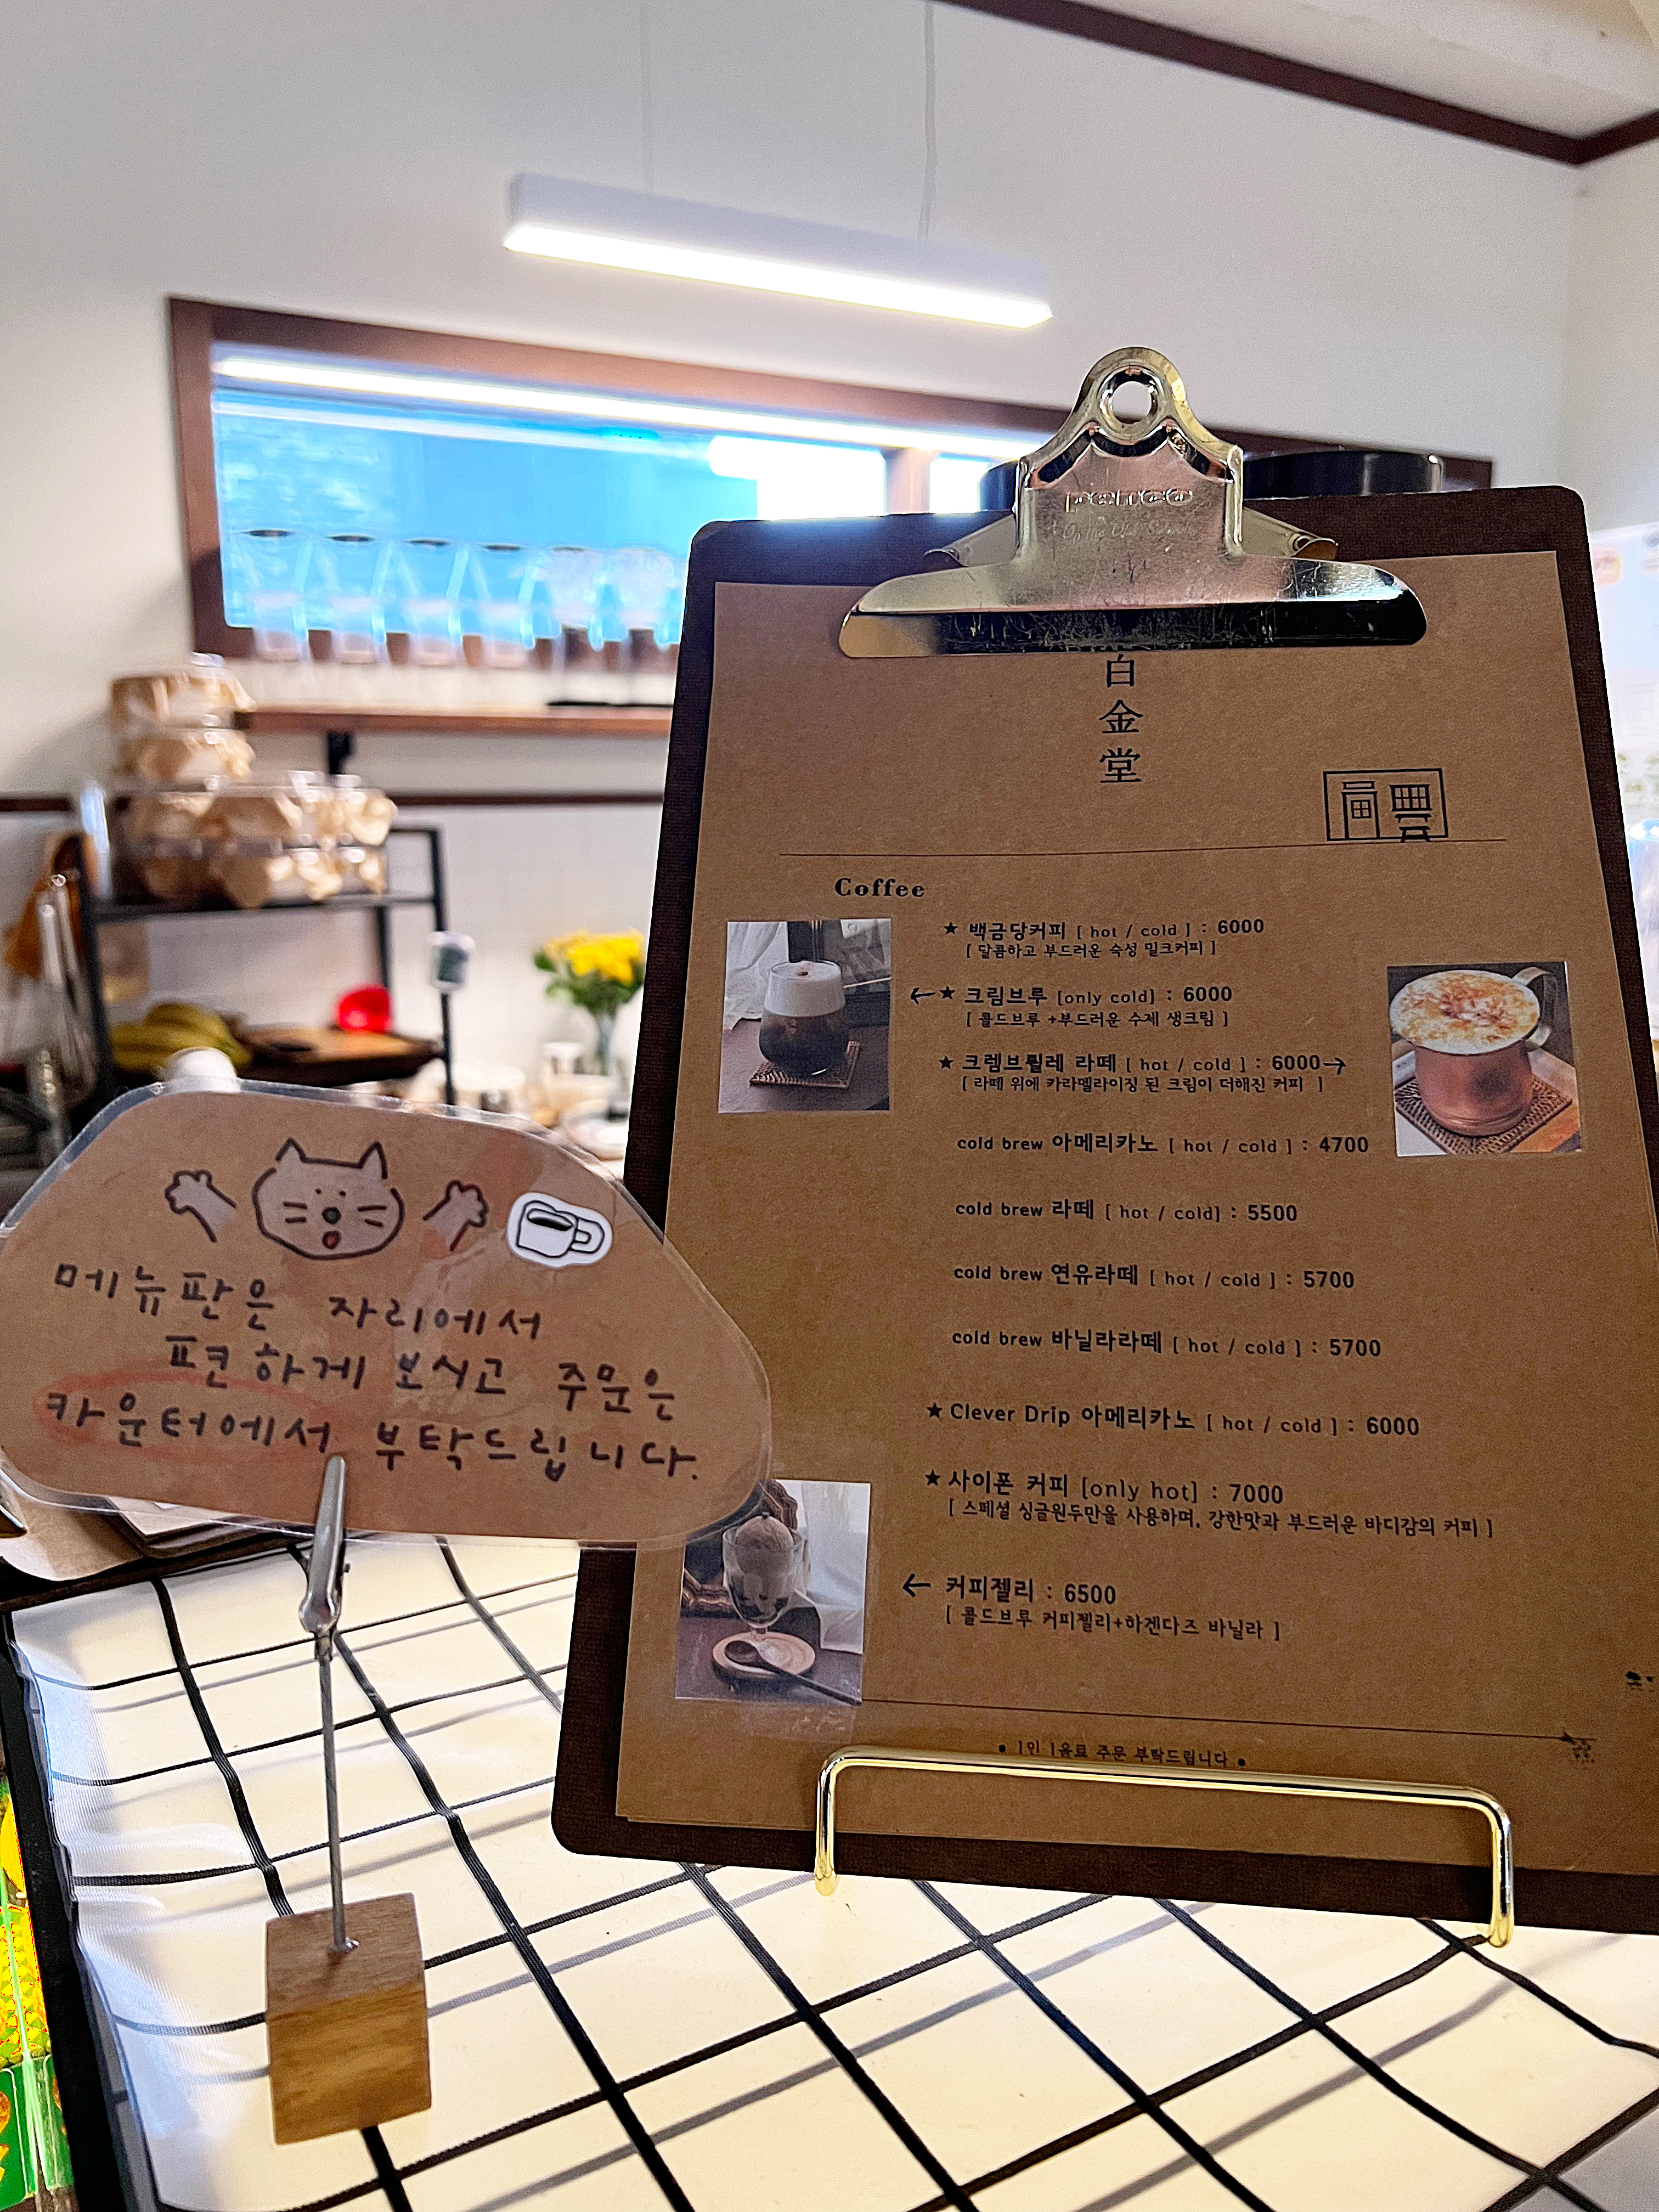 白
金
堂
Coffee
★ 백금당커피 [ hot / cold ] : 6000
[ 달콤하고 부드러운 숙성 밀크커피 ]
←★ 크림브루 [only cold] : 6000
[ 콜드브루 +부드러운 수제 생크림 ]
★ 크렘브륄레 라떼 [ hot / cold ] : 6000→
[ 라떼 위에 카라멜라이징 된 크림이 더해진 커피 ]
cold brew 아메리카노 [ hot / cold ] : 4700
cold brew 라떼 [ hot / cold] : 5500
cold brew 연유라떼 [ hot / cold ] : 5700
cold brew 바닐라라떼 [ hot / cold ] : 5700
★ Clever Drip 아메리카노 [ hot / cold ] : 6000
★ 사이폰 커피 [only hot] : 7000
[ 스페셜 싱글원두만을 사용하며, 강한맛과 부드러운 바디감의 커피 ]
← 커피젤리 : 6500
[ 콜드브루 커피젤리+하겐다즈 바닐라 ]
• 1인 1음료 주문 부탁드립니다 •
메뉴판은 자리에서
편하게 보시고 주문은
카운터에서 부탁드립니다.